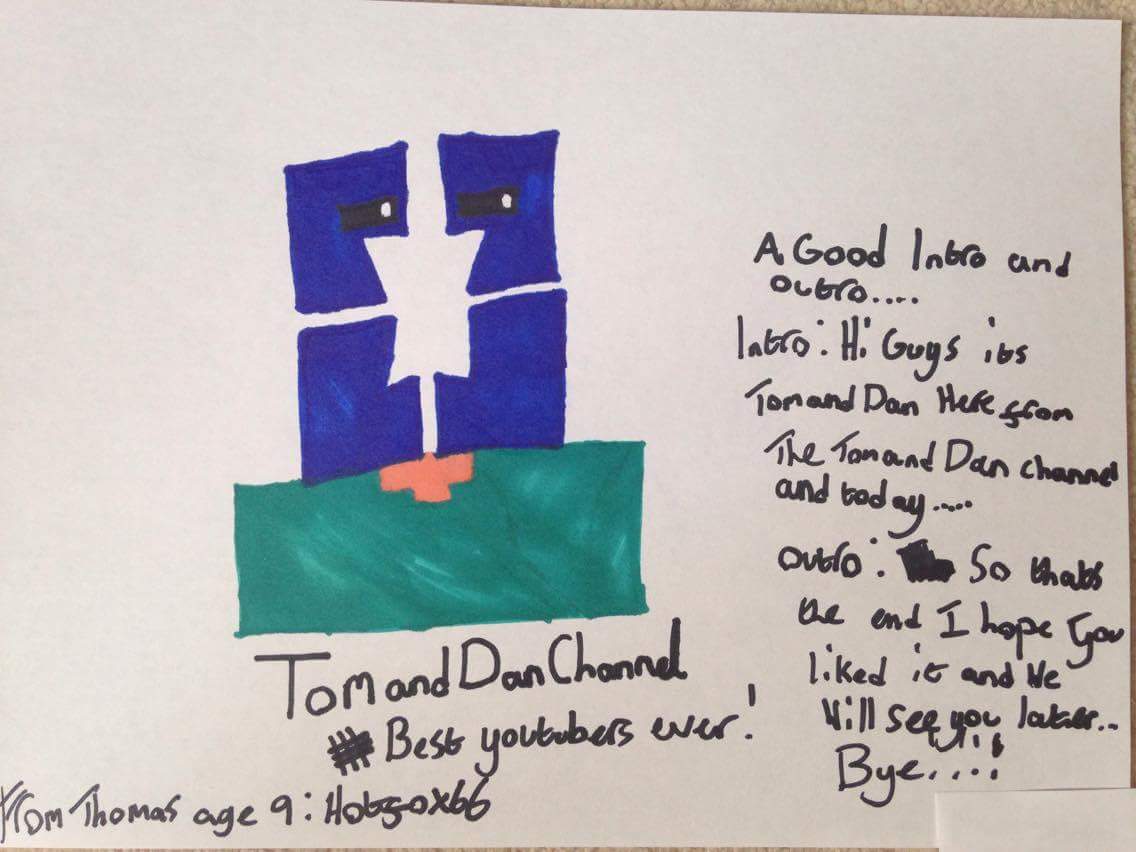 A Good Intro and
outro....
Intro: Hi Guys its
Tom and Dan Here from
The Tom and Dan channel
and today.....
outro: So thats
the end I hope you
liked it and We
Will see you later...
Bye....!
Tom and Dan Channel
# Best youtubers ever!
From Thomas age 9: Hotfox66